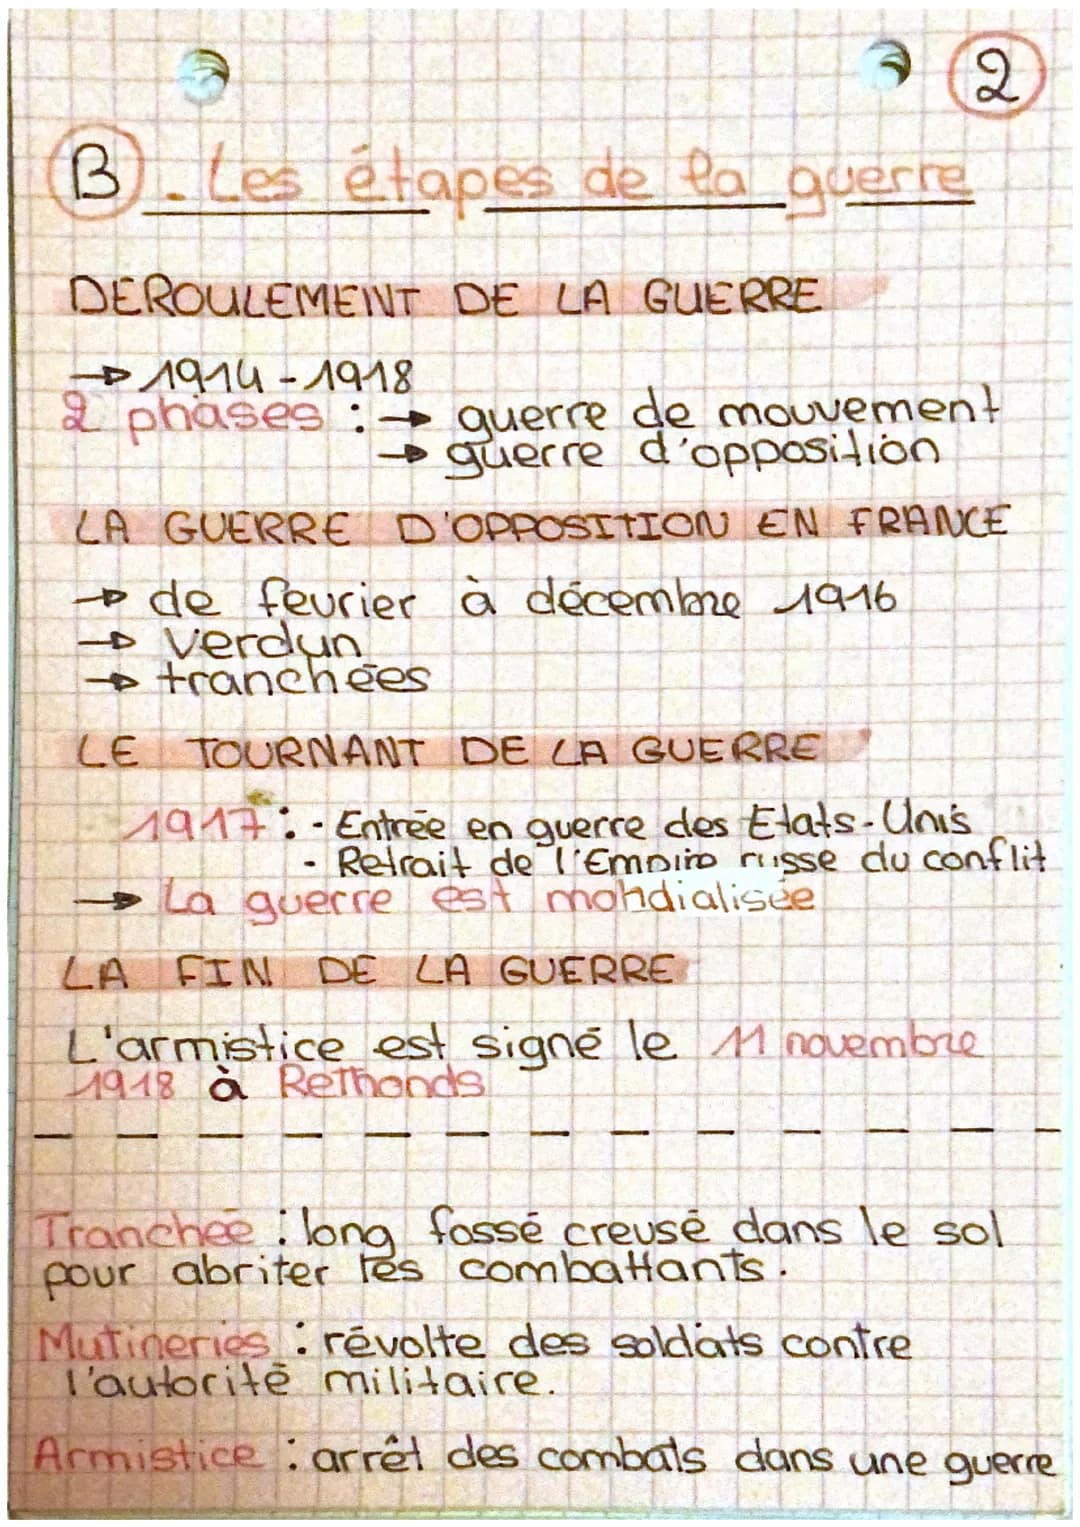 2
B. Les étapes de la guerre
DEROULEMENT DE LA GUERRE
→ 1914 - 1918
2 phases : → guerre de mouvement
→ guerre d'opposition
LA GUERRE D'OPPOSITION EN FRANCE
→ de fevrier à décembre 1916
→ verdun
→ tranchées
LE TOURNANT DE LA GUERRE
1917 : - Entrée en guerre des Etats-Unis
- Retrait de l'Empire russe du conflit
→ La guerre est mondialisée
LA FIN DE LA GUERRE
L'armistice est signé le 11 novembre
1918 à Rethonds
Tranchée : long fossé creusé dans le sol
pour abriter les combattants.
Mutineries : révolte des soldats contre
l'autorité militaire.
Armistice : arrêt des combats dans une guerre